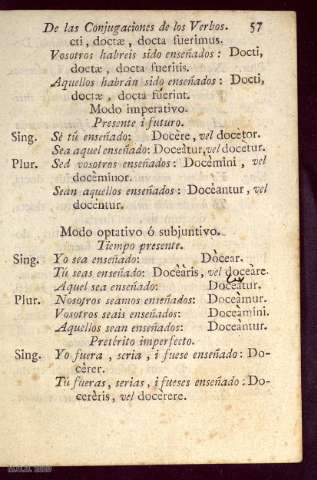 De las Conjugaciones de los Verbos. 57
cti, doctæ, docta fuerimus.
Vosotros habreis sido enseñados: Docti,
doctæ, docta fueritis.
Aquellos habrán sido enseñados: Docti,
doctæ, docta fúerint.
Modo imperativo.
Presente i futuro.
Sing. Sé tú enseñado: Docère, vel docètor.
Sea aquel enseñado: Doceàtur, vel docetur.
Plur. Sed vosotros enseñados: Docèmini, vel
docèminor.
Sean aquellos enseñados: Docèantur, vel
docèntur.
Modo optativo ó subjuntivo.
Tiempo presente.
Sing. Yo sea enseñado: Dòcear.
Tú seas enseñado: Doceàris, vel doceàre.
Aquel sea enseñado: Doceàtur.
Plur. Nosotros seamos enseñados: Doceàmur.
Vosotros seais enseñados: Doceàmini.
Aquellos sean enseñados: Doceàntur.
Pretérito imperfecto.
Sing. Yo fuera, seria, i fuese enseñado: Do-
cèrer.
Tú fueras, serias, i fueses enseñado: Do-
cerèris, vel docèrere.